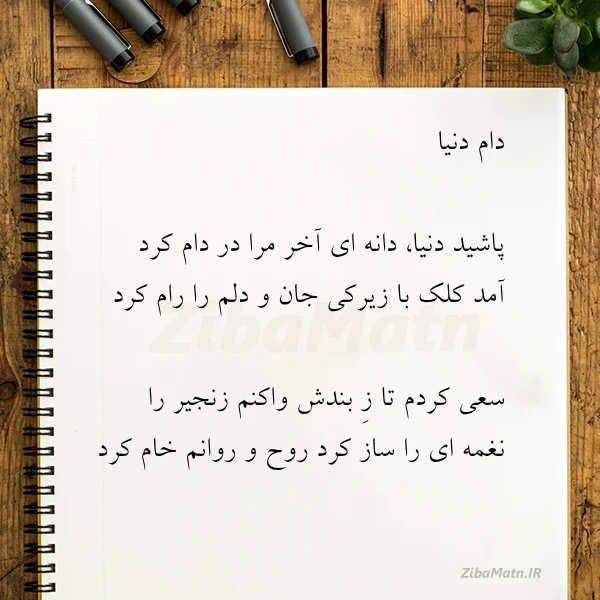 دام دنیا
پاشید دنیا، دانه ای آخر مرا در دام کرد
آمد کلک با زیرکی جان و دلم را رام کرد
سعی کردم تا زِ بندش واکنم زنجیر را
نغمه ای را ساز کرد روح و روانم خام کرد
ZibaMatn
ZibaMatn.IR